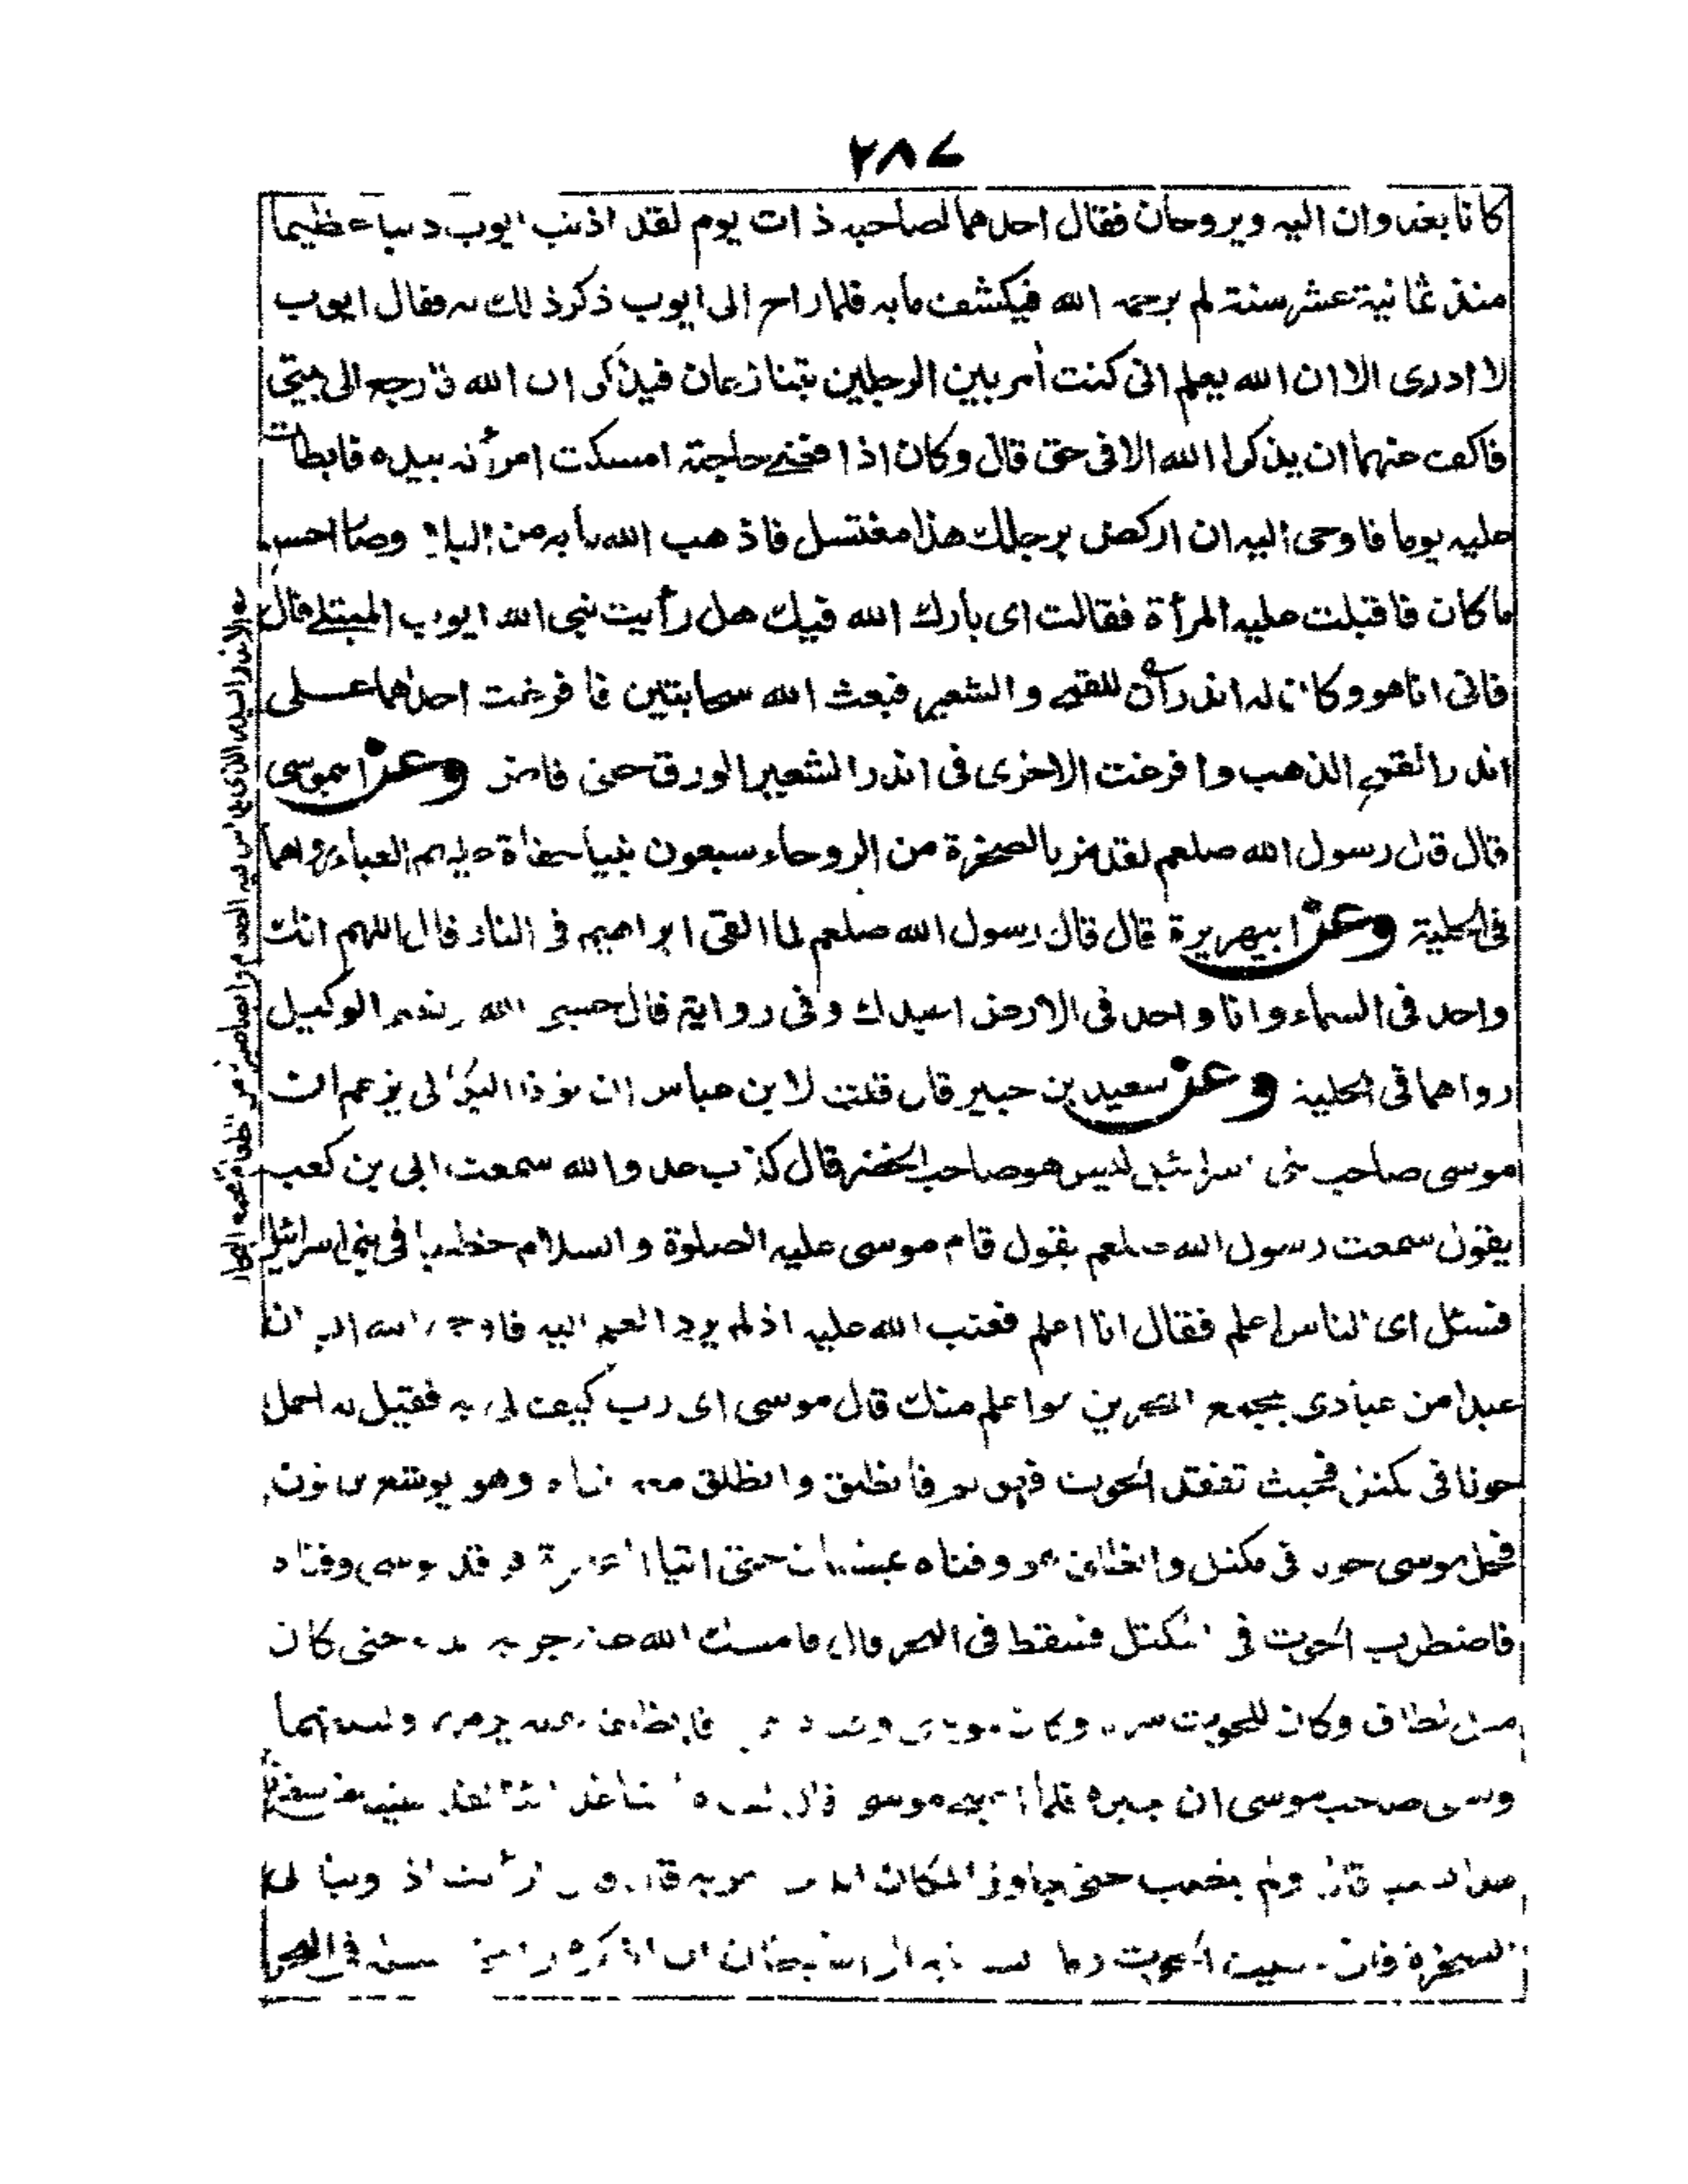 ٢٨٧
كانا يغدوان اليه ويروحان فقال احدهما لصاحبه ذات يوم لقد اذنب ايوب ذنبا عظيما
منذ ثمانية عشر سنة لم يرحمه الله فيكشف مابه فلما راح الى ايوب ذكر ذلك له فقال ايوب
لا ادرى الا ان الله يعلم انى كنت أمر بين الرجلين يتنازعان فيذكران الله فارجع الى بيتى
فاكف عنهما ان يذكرا الله الا فى حق قال وكان اذا قضى حاجته امسكت امرأته بيده فابطأت
عليه يوما فاوحى اليه ان اركض برجلك هذا مغتسل فاذهب الله مابه من البلاء وصار احسن
ما كان فاقبلت عليه المرأة فقالت اى بارك الله فيك هل رأيت نبى الله ايوب المبتلى قال
فانى انا هو وكان له اندران للقمح والشعير فبعث الله سحابتين فافرغت احداهما على
اندر القمح الذهب وافرغت الاخرى فى اندر الشعير الورق حتى فاض وعن ابى موسى
قال قال رسول الله صلعم لقد مر بالصخرة من الروحاء سبعون نبيا حفاة عليهم العباء رواهما
فى الحلية وعن ابيهريرة قال قال رسول الله صلعم لما القى ابراهيم فى النار قال اللهم انك
واحد فى السماء وانا واحد فى الارض اعبدك وفى رواية قال حسبى الله ونعم الوكيل
رواهما فى الحلية وعن سعيد بن جبير قال قلت لابن عباس ان نوفا البكالى يزعم ان
موسى صاحب بنى اسرائيل ليس هو صاحب الخضر قال كذب عدو الله سمعت ابى بن كعب
يقول سمعت رسول الله صلعم يقول قام موسى عليه الصلوة والسلام خطيبا فى بنى اسرائيل
فسئل اى الناس اعلم فقال انا اعلم فعتب الله عليه اذ لم يرد العلم اليه فاوحى الله اليه ان
عبدا من عبادى بمجمع البحرين هو اعلم منك قال موسى اى رب كيف لى به فقيل له احمل
حوتا فى مكتل فحيث تفقد الحوت فهو ثم فانطلق وانطلق معه فتاه وهو يوشع بن نون
فحمل موسى حوتا فى مكتل وانطلق هو وفتاه يمشيان حتى اتيا الصخرة فرقد موسى وفتاه
فاضطرب الحوت فى المكتل فسقط فى البحر قال فامسك الله عنه جرية الماء حتى كان
مثل الطاق وكان للحوت سربا وكان موسى فانطلقا بقية يومهما وليلتهما
ونسى صاحب موسى ان يخبره فلما اصبح موسى قال لفتاه اتنا غداءنا لقد لقينا من سفرنا
هذا نصبا قال ولم ينصب حتى جاوز المكان الذى امر به قال أرأيت اذ اوينا الى
الصخرة فانى نسيت الحوت وما انسانيه الا الشيطان ان اذكره فى البحر